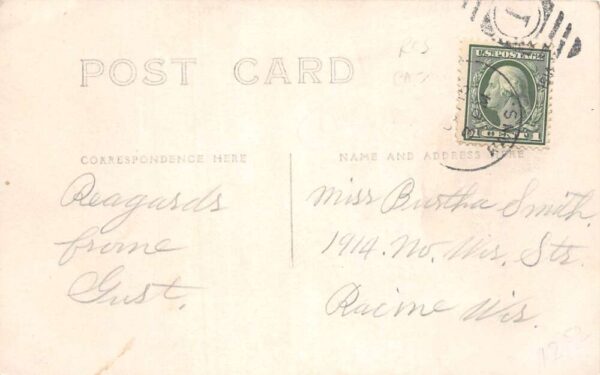 POST CARD
U.S. POSTAGE
1 CENT 1
CORRESPONDENCE HERE
NAME AND ADDRESS HERE
Reagards
frome
Gust.
Miss Burtha Smith.
1914. No. Wis. Str.
Racine Wis.